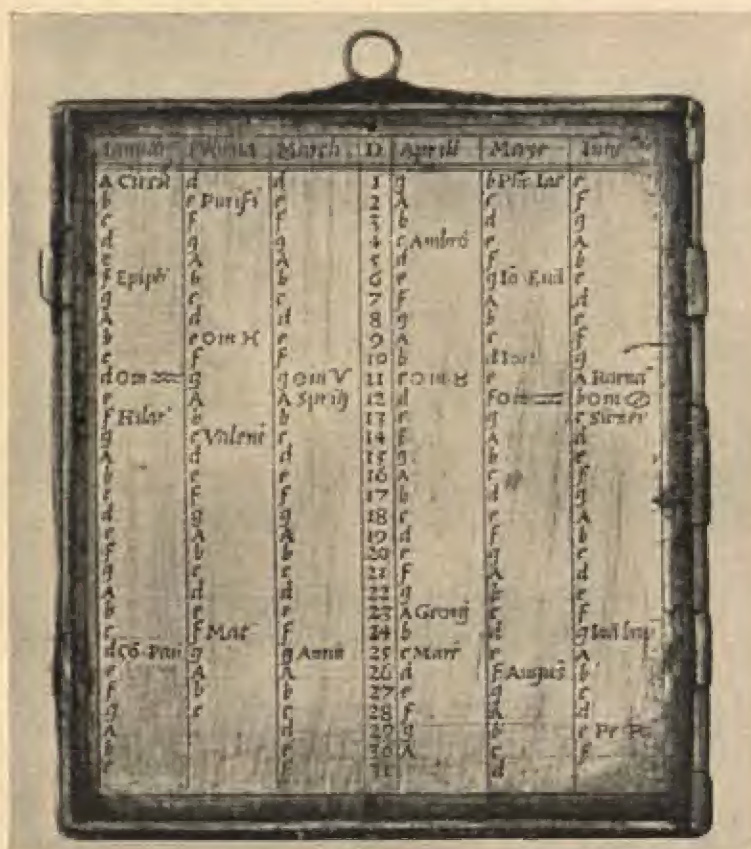 March D Aprill Maye
A d d 1 g b Phi: Iac e
b e Purifi e 2 A c f
c f f 3 b d g
d g g 4 c Ambro e A
e A A 5 d f b
f Epiph b b 6 e g Io Eua c
g c c 7 f A d
A d d 8 g b e
b e O in ♓ e 9 A c f
c f f 10 b d g
d O in ♒ g g O in ♈ 11 c O in ♉ e A Barna
e A A Sprīg 12 d f O in b O in
f Hilar b b 13 e g c
g c Valent c 14 f A d
A d d 15 g b e
b e e 16 A c f
c f f 17 b d g
d g g 18 c e A
e A A 19 d f b
f b b 20 e g c
g c c 21 f A d
A d d 22 g b e
b e e 23 A Georg c f
c f Mat f 24 b d g
d Cō-Pau g g Annu 25 c Marc e A
e A A 26 d f Augus b
f b b 27 e g c
g c c 28 f A d
A d 29 g b e
b e 30 A c f
c f 31 d